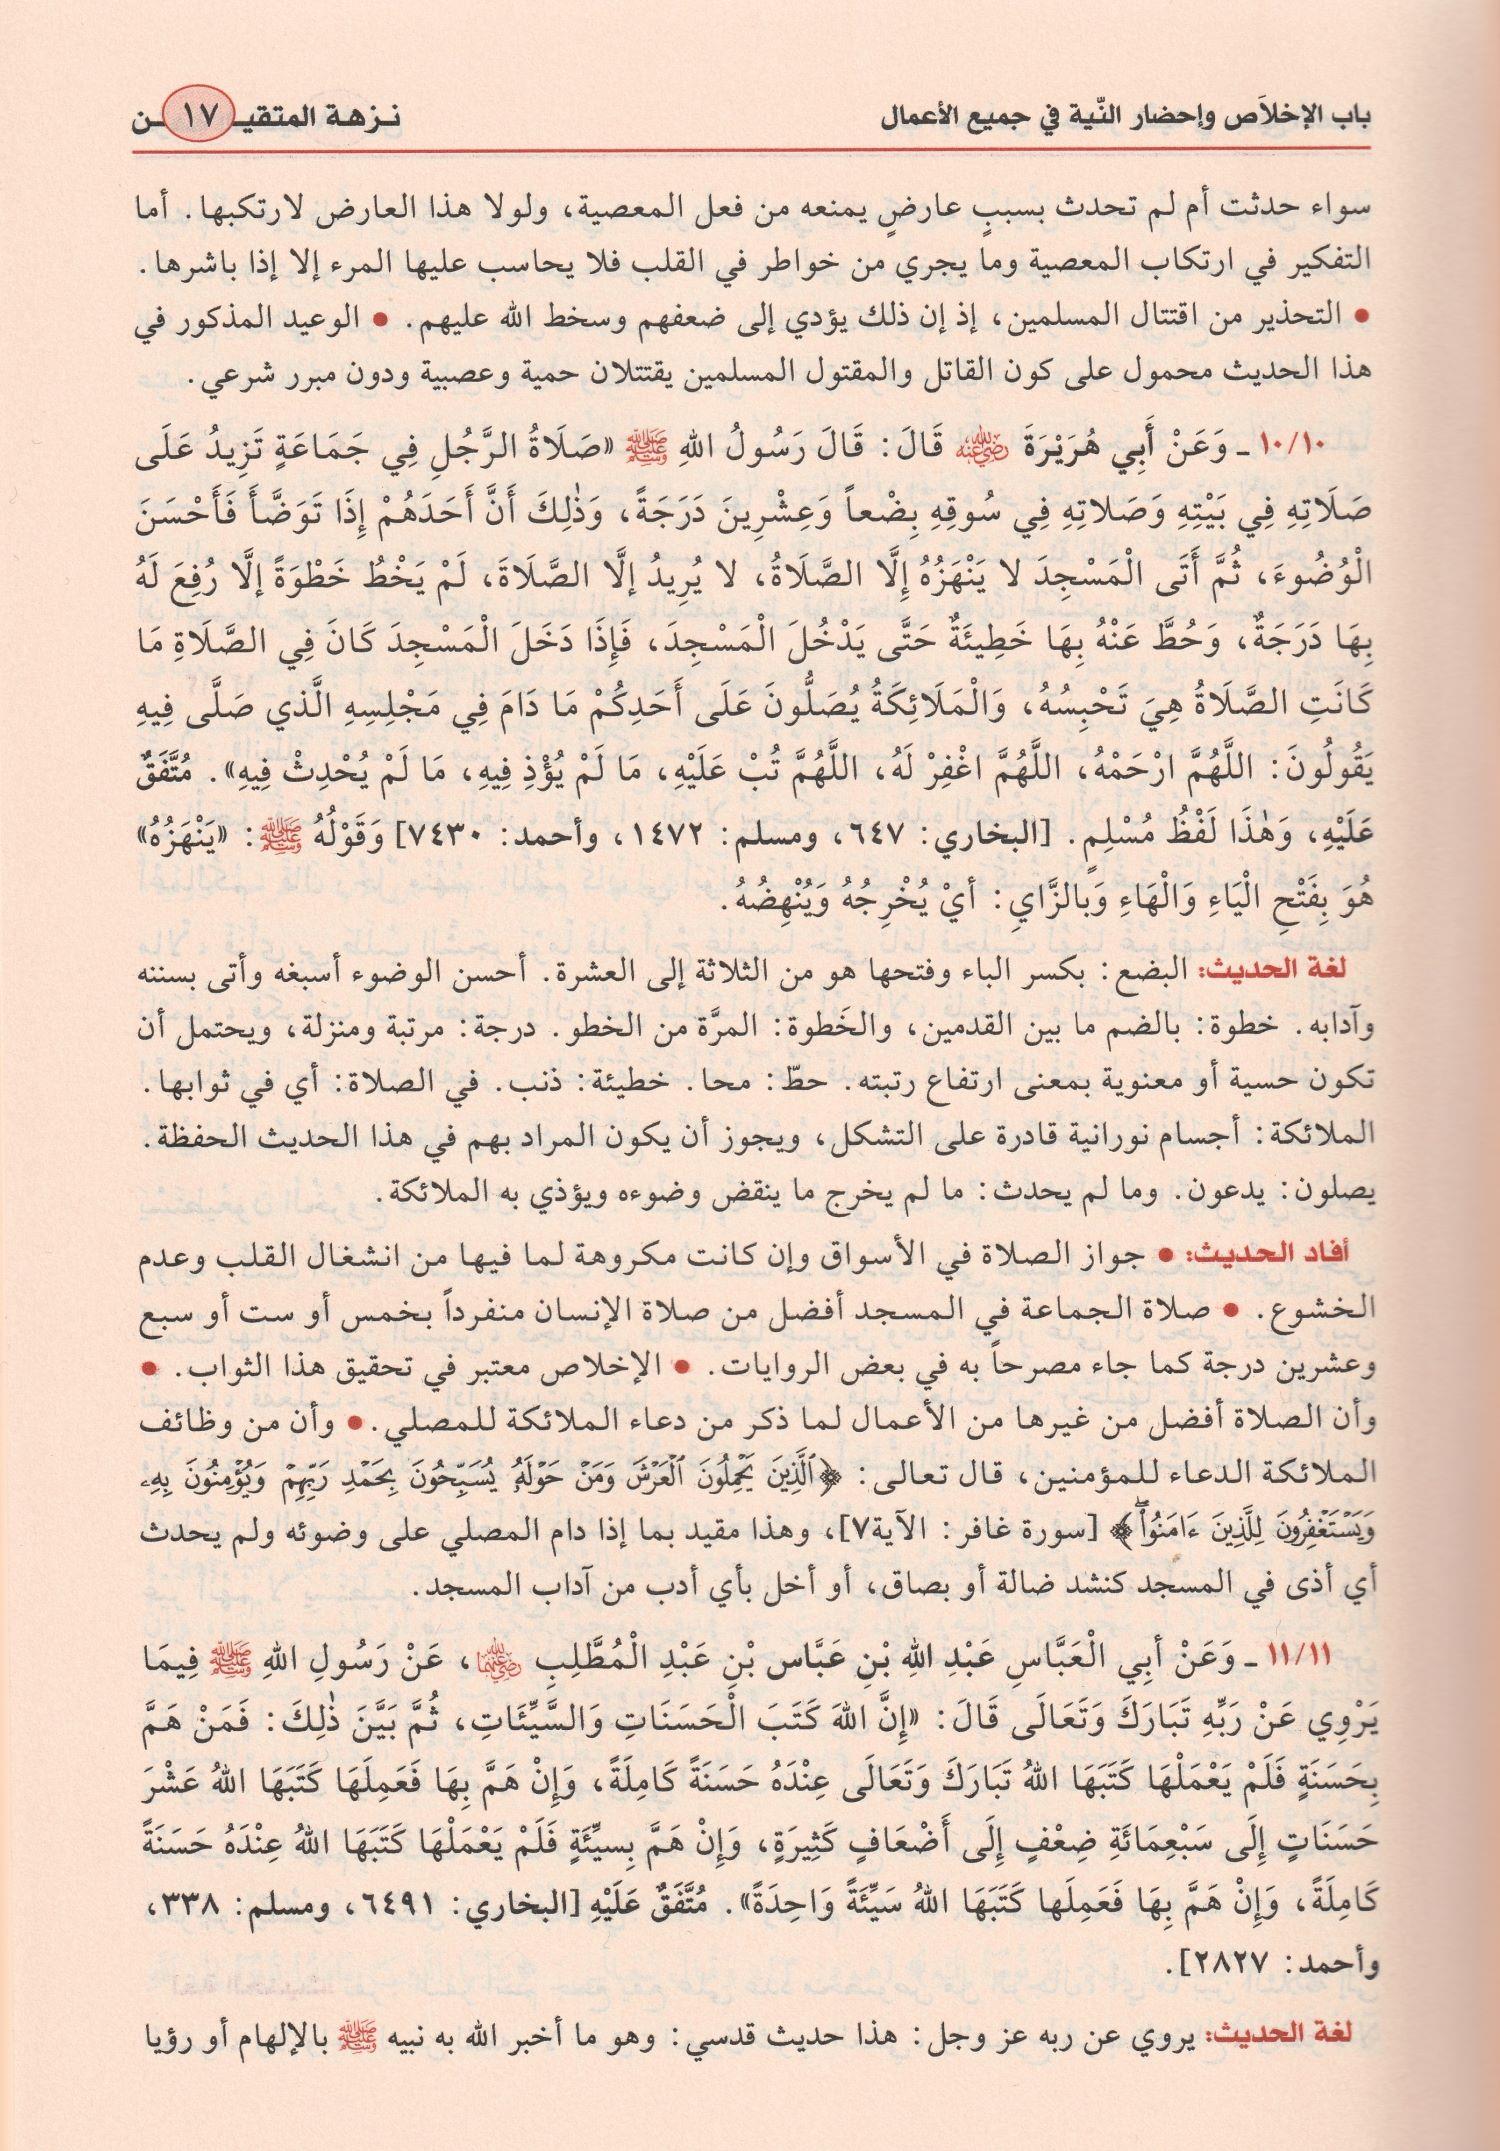 باب الإخلاَص وإحضار النّية في جميع الأعمال
نزهة المتقين ١٧
سواء حدثت أم لم تحدث بسببٍ عارضٍ يمنعه من فعل المعصية، ولولا هذا العارض لارتكبها. أما
التفكير في ارتكاب المعصية وما يجري من خواطر في القلب فلا يحاسب عليها المرء إلا إذا باشرها.
● التحذير من اقتتال المسلمين، إذ إن ذلك يؤدي إلى ضعفهم وسخط الله عليهم. ● الوعيد المذكور في
هذا الحديث محمول على كون القاتل والمقتول المسلمين يقتتلان حمية وعصبية ودون مبرر شرعي.
١٠/١٠ ـ وَعَنْ أَبِي هُرَيْرَةَ رضي الله عنه قَالَ: قَالَ رَسُولُ اللهِ ﷺ «صَلَاةُ الرَّجُلِ فِي جَمَاعَةٍ تَزِيدُ عَلَى
صَلَاتِهِ فِي بَيْتِهِ وَصَلاتِهِ فِي سُوقِهِ بِضْعاً وَعِشْرِينَ دَرَجَةً، وَذٰلِكَ أَنَّ أَحَدَهُمْ إِذَا تَوَضَّأَ فَأَحْسَنَ
الْوُضُوءَ، ثُمَّ أَتَى الْمَسْجِدَ لا يَنْهَزُهُ إِلَّا الصَّلَاةُ، لا يُرِيدُ إلَّا الصَّلَاةَ، لَمْ يَخْطُ خَطْوَةً إلَّا رُفِعَ لَهُ
بِهَا دَرَجَةٌ، وَحُطَّ عَنْهُ بِهَا خَطِيئَةٌ حَتَّى يَدْخُلَ الْمَسْجِدَ، فَإِذَا دَخَلَ الْمَسْجِدَ كَانَ فِي الصَّلَاةِ مَا
كَانَتِ الصَّلَاةُ هِيَ تَحْبِسُهُ، وَالْمَلَائِكَةُ يُصَلُّونَ عَلَى أَحَدِكُمْ مَا دَامَ فِي مَجْلِسِهِ الَّذي صَلَّى فِيهِ
يَقُولُونَ: اللَّهُمَّ ارْحَمْهُ، اللَّهُمَّ اغْفِرْ لَهُ، اللَّهُمَّ تُبْ عَلَيْهِ، مَا لَمْ يُؤْذِ فِيهِ، مَا لَمْ يُحْدِثْ فِيهِ». مُتَّفَقٌ
عَلَيْهِ، وَهٰذَا لَفْظُ مُسْلِمٍ. [البخاري: ٦٤٧، ومسلم: ١٤٧٢، وأحمد: ٧٤٣٠] وَقَوْلُهُ ﷺ: «يَنْهَزُهُ»
هُوَ بِفَتْحِ الْيَاءِ وَالْهَاءِ وَبالزَّايِ: أيْ يُخْرِجُهُ وَيُنْهِضُهُ.
لغة الحديث: البضع: بكسر الباء وفتحها هو من الثلاثة إلى العشرة. أحسن الوضوء أسبغه وأتى بسننه
وآدابه. خطوة: بالضم ما بين القدمين، والخَطوة: المرَّة من الخطو. درجة: مرتبة ومنزلة، ويحتمل أن
تكون حسية أو معنوية بمعنى ارتفاع رتبته. حطّ: محا. خطيئة: ذنب. في الصلاة: أي في ثوابها.
الملائكة: أجسام نورانية قادرة على التشكل، ويجوز أن يكون المراد بهم في هذا الحديث الحفظة.
يصلون: يدعون. وما لم يحدث: ما لم يخرج ما ينقض وضوءه ويؤذي به الملائكة.
أفاد الحديث: ● جواز الصلاة في الأسواق وإن كانت مكروهة لما فيها من انشغال القلب وعدم
الخشوع. ● صلاة الجماعة في المسجد أفضل من صلاة الإنسان منفرداً بخمس أو ست أو سبع
وعشرين درجة كما جاء مصرحاً به في بعض الروايات. ● الإخلاص معتبر في تحقيق هذا الثواب. ●
وأن الصلاة أفضل من غيرها من الأعمال لما ذكر من دعاء الملائكة للمصلي. ● وأن من وظائف
الملائكة الدعاء للمؤمنين، قال تعالى: ﴿ٱلَّذِينَ يَحۡمِلُونَ ٱلۡعَرۡشَ وَمَنۡ حَوۡلَهُۥ يُسَبِّحُونَ بِحَمۡدِ رَبِّهِمۡ وَيُؤۡمِنُونَ بِهِۦ
وَيَسۡتَغۡفِرُونَ لِلَّذِينَ ءَامَنُواْۖ﴾ [سورة غافر: الآية٧]، وهذا مقيد بما إذا دام المصلي على وضوئه ولم يحدث
أي أذى في المسجد كنشد ضالة أو بصاق، أو أخل بأي أدب من آداب المسجد.
١١/١١ ـ وَعَنْ أبِي الْعَبَّاسِ عَبْدِ اللهِ بْنِ عَبَّاس بْنِ عَبْدِ الْمُطَّلِبِ رضي الله عنهما، عَنْ رَسُولِ اللهِ ﷺ فِيمَا
يَرْوِي عَنْ رَبِّهِ تَبَارَكَ وَتَعَالَى قَالَ: «إِنَّ اللهَ كَتَبَ الْحَسَنَاتِ وَالسَّيِّئَاتِ، ثُمَّ بَيَّنَ ذٰلِكَ: فَمَنْ هَمَّ
بِحَسَنَةٍ فَلَمْ يَعْمَلْهَا كَتَبَهَا اللهُ تَبَارَكَ وَتَعَالَى عِنْدَهُ حَسَنَةً كَامِلَةً، وَإِنْ هَمَّ بِهَا فَعَمِلَهَا كَتَبَهَا اللهُ عَشْرَ
حَسَنَاتٍ إِلَى سَبْعِمَائَةِ ضِعْفٍ إِلَى أَضْعَافٍ كَثِيرَةٍ، وَإِنْ هَمَّ بِسيِّئَةٍ فَلَمْ يَعْمَلْهَا كَتَبَهَا اللهُ عِنْدَهُ حَسَنَةً
كَامِلَةً، وَإِنْ هَمَّ بِهَا فَعَمِلَها كَتَبَهَا اللهُ سَيِّئَةً وَاحِدَةً». مُتَّفَقٌ عَلَيْهِ [البخاري: ٦٤٩١، ومسلم: ٣٣٨،
وأحمد: ٢٨٢٧].
لغة الحديث: يروي عن ربه عز وجل: هذا حديث قدسي: وهو ما أخبر الله به نبيه ﷺ بالإلهام أو رؤيا